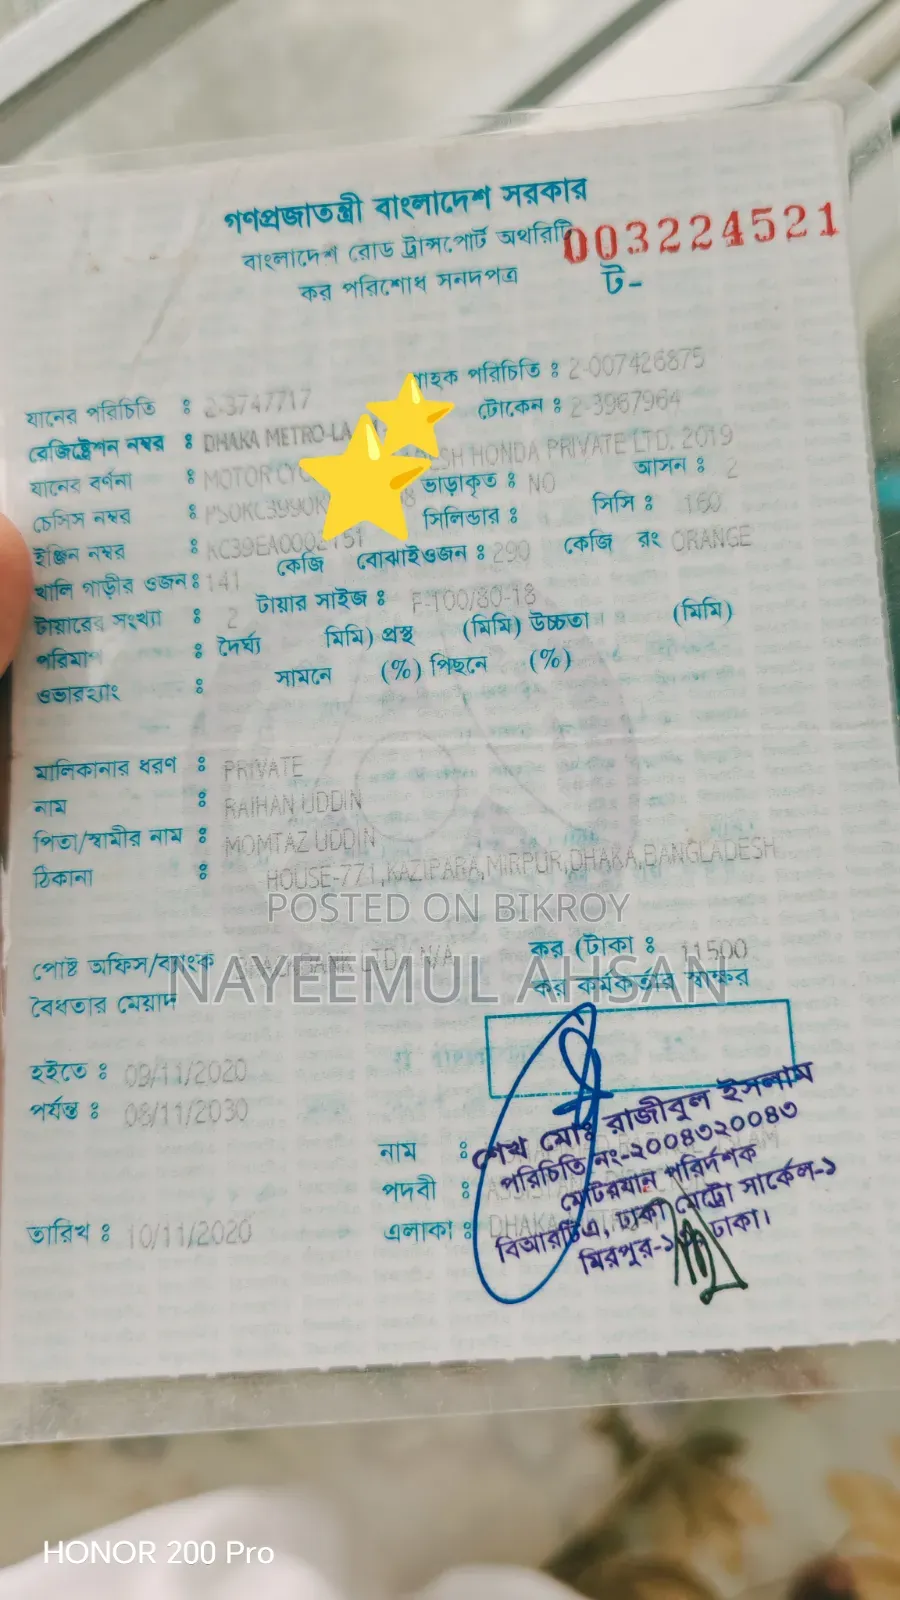 গণপ্রজাতন্ত্রী বাংলাদেশ সরকার
বাংলাদেশ রোড ট্রান্সপোর্ট অথরিটি
003224521
কর পরিশোধ সনদপত্র
ট-
যানের পরিচিতি : 2-3747717 গ্রাহক পরিচিতি : 2-007426875
রেজিষ্ট্রেশন নম্বর : DHAKA METRO-LA টোকেন : 2-3967964
যানের বর্ণনা : MOTOR CYC ESH HONDA PRIVATE LTD. 2019
চেসিস নম্বর : ভাড়াকৃত : NO আসন : 2
ইঞ্জিন নম্বর : সিলিন্ডার : সিসি : 160
খালি গাড়ীর ওজন : 141 কেজি বোঝাইওজন : 290 কেজি রং ORANGE
টায়ারের সংখ্যা : 2 টায়ার সাইজ : F-100/80-18
পরিমাণ : দৈর্ঘ্য মিমি) প্রস্থ (মিমি) উচ্চতা (মিমি)
ওভারহ্যাং : সামনে (%) পিছনে (%)
মালিকানার ধরণ : PRIVATE
নাম : RAIHAN UDDIN
পিতা/স্বামীর নাম : MOMTAZ UDDIN
ঠিকানা : HOUSE-771,KAZIPARA,MIRPUR,DHAKA,BANGLADESH
POSTED ON BIKROY
পোষ্ট অফিস/ব্যাংক BANK LTD., N/A কর (টাকা : 11500
NAYEEMUL AHSAN
বৈধতার মেয়াদ কর কর্মকর্তার স্বাক্ষর
হইতে : 09/11/2020
পর্যন্ত : 08/11/2030
নাম :
শেখ মোঃ রাজীবুল ইসলাম
পরিচিতি নং-২০০৪৩২০০৪৩
পদবী :
মোটরযান পরিদর্শক
তারিখ : 10/11/2020
এলাকা : DHAKA
বিআরটিএ, ঢাকা মেট্রো সার্কেল-১
মিরপুর- ঢাকা।
HONOR 200 Pro